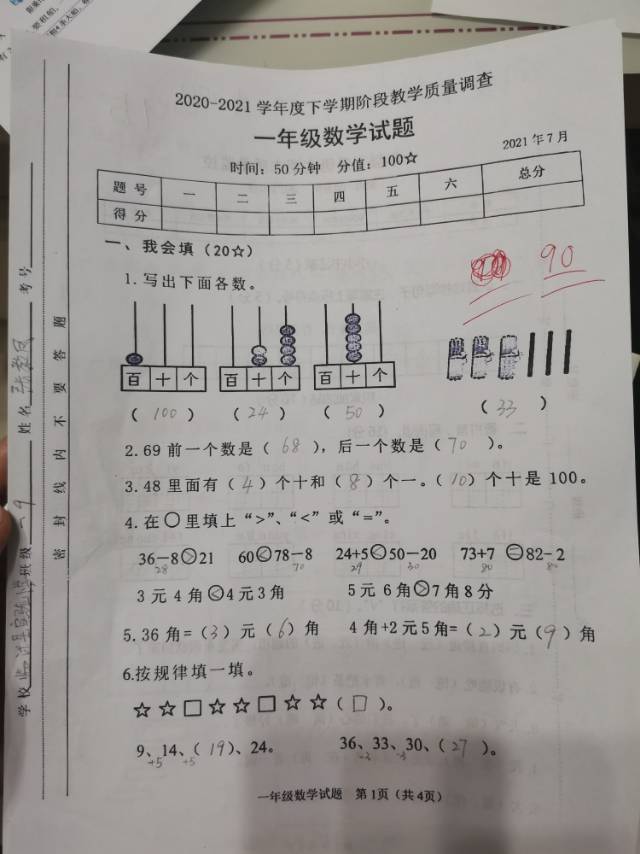 2020-2021 学年度下学期阶段教学质量调查
一年级数学试题
2021 年 7 月
时间：50 分钟 分值：100☆
题 号 一 二 三 四 五 六 总分
得 分
90
一、我会填（20☆）
1. 写出下面各数。
百 十 个 百 十 个 百 十 个
（ 100 ） （ 24 ） （ 50 ） （ 33 ）
2. 69 前一个数是（ 68 ），后一个数是（ 70 ）。
3. 48 里面有（ 4 ）个十和（ 8 ）个一。（ 10 ）个十是 100。
4. 在○里填上“>”、“<”或“=”。
36－8>21 60<78－8 24+5<50－20 73+7=82－2
28 70 29 30 80 80
3 元 4 角<4 元 3 角 5 元 6 角>7 角 8 分
5. 36 角=（ 3 ）元（ 6 ）角 4 角+2 元 5 角=（ 2 ）元（ 9 ）角
6.按规律填一填。
☆ ☆ □ ☆ ☆ □ ☆ ☆（ □ ）。
9、14、（ 19 ）、24。 36、33、30、（ 27 ）。
+5 +5 -3 -3
一年级数学试题 第 1页（共 4页）
学校 班级 一.9 姓名 考号
密 封 线 内 不 要 答 题